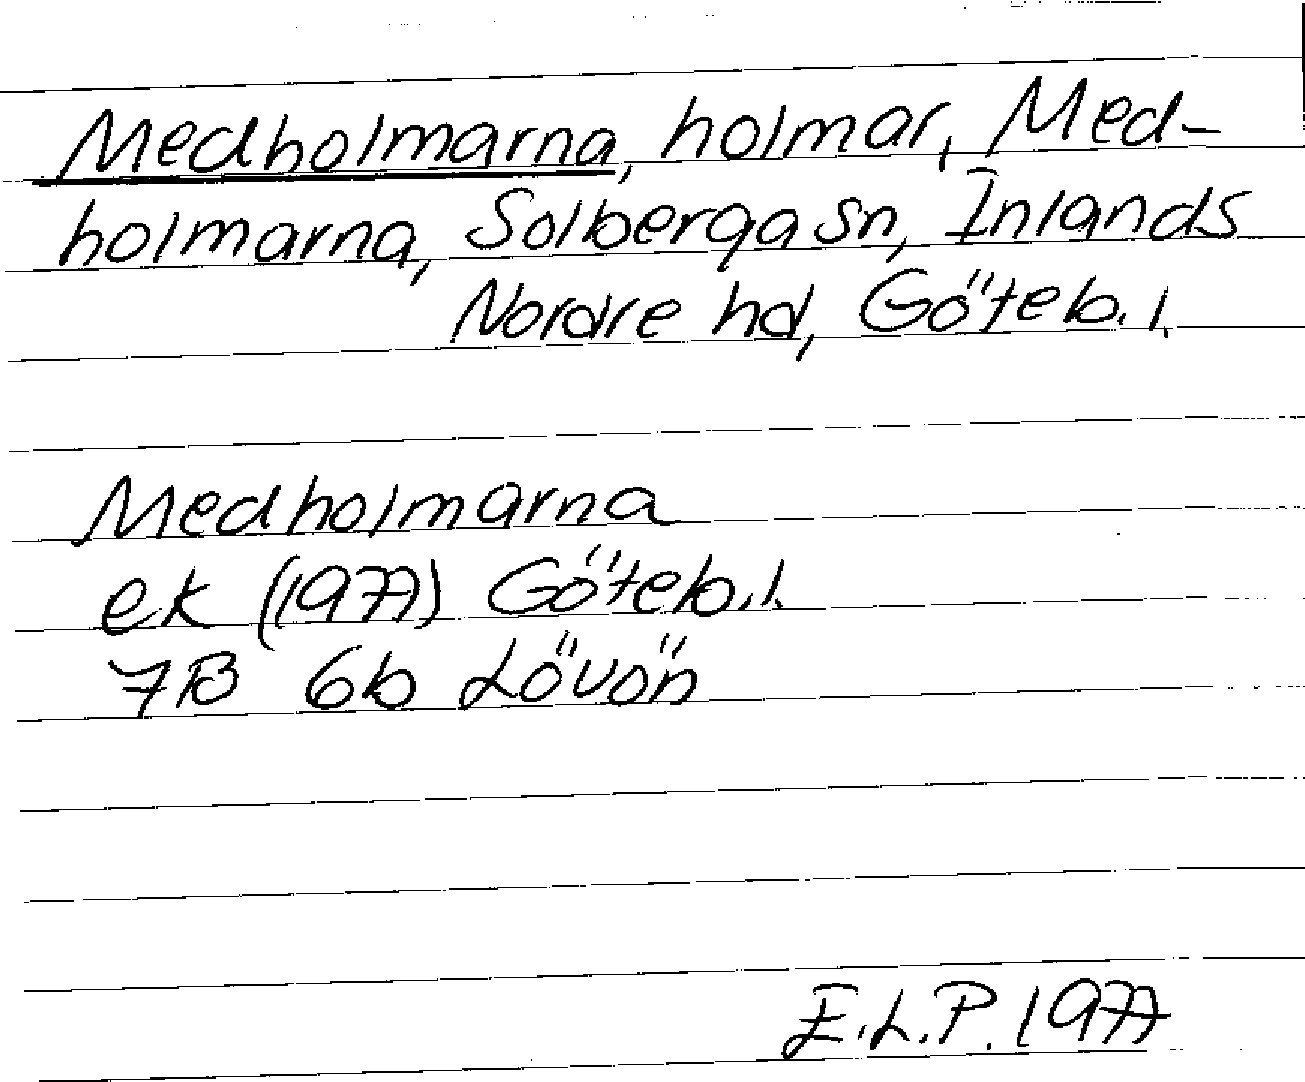 Medholmarna, holmar, Med-
holmarna, Solberga sn, Inlands
Nordre hd, Göteb. l.
Medholmarna
ek (1977) Göteb. l.
7B 6b Lövön
E.L.P. 1977